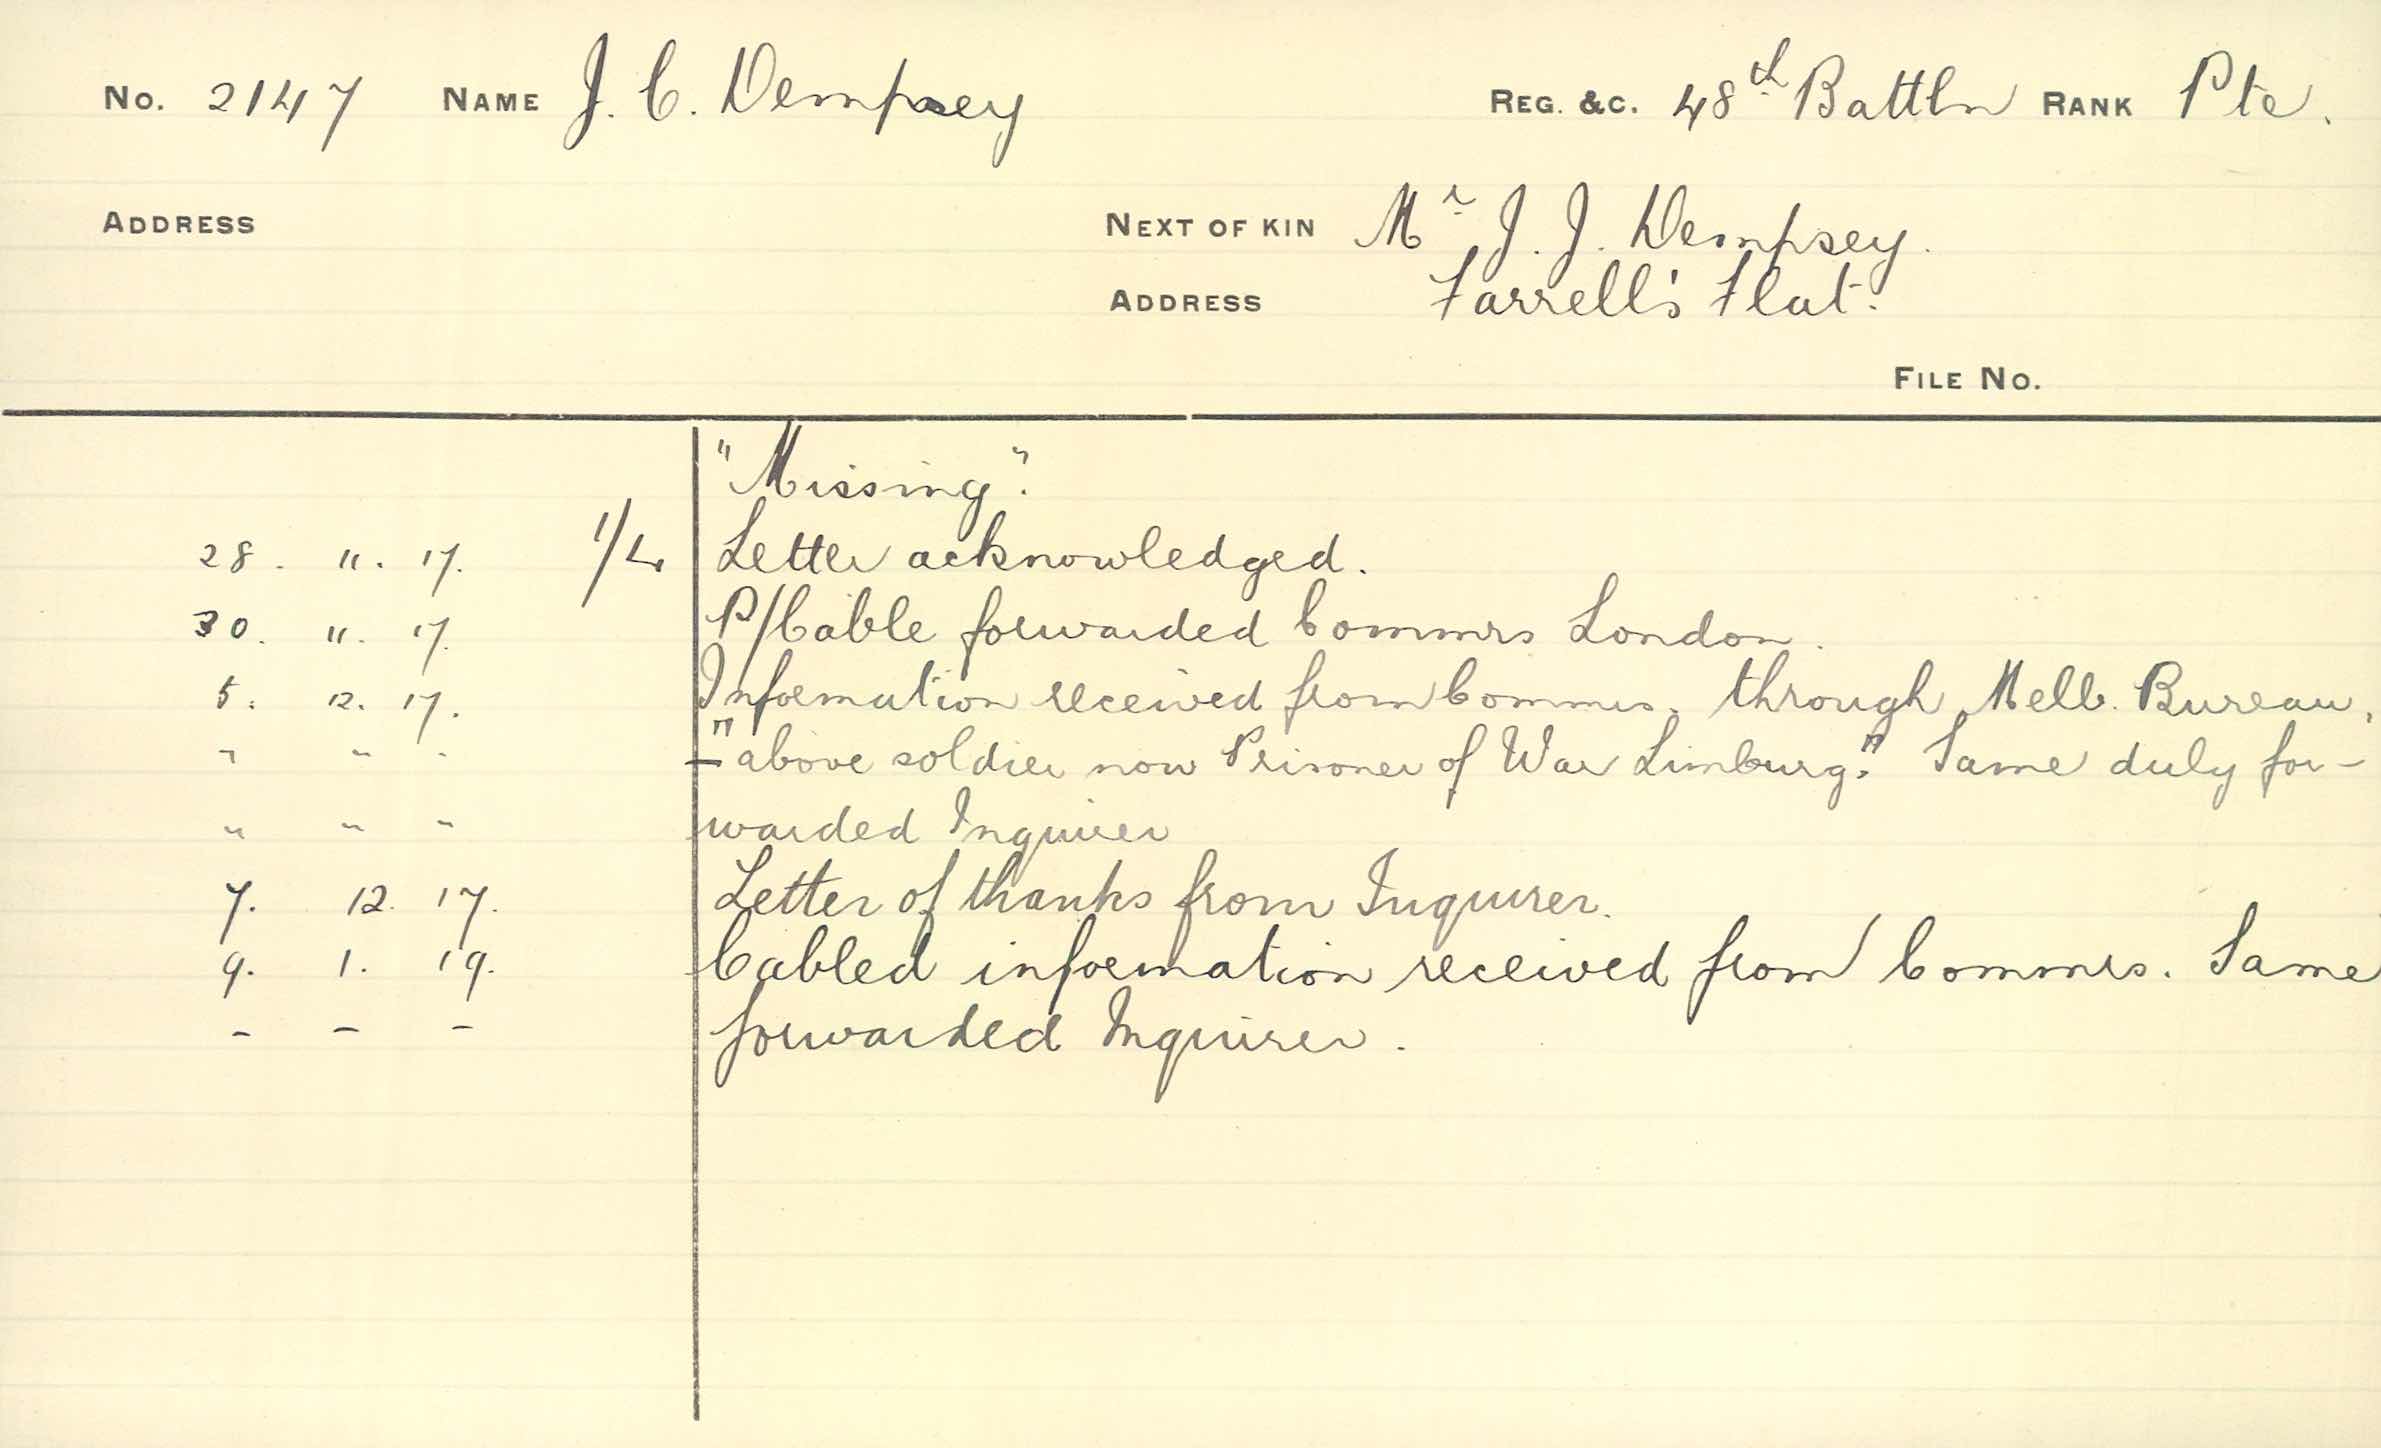 No. 2147 NAME J. C. Dempsey REG. &C. 48th Battln RANK Pte.
ADDRESS NEXT OF KIN Mr J. J. Dempsey.
ADDRESS Farrell's Flat.
FILE No.
"Missing".
28. 11. 17. 1/L Letter acknowledged.
30. 11. 17. P/Cable forwarded Commrs London.
5. 12. 17. Information received from Commrs. through Melb. Bureau,
" " " – "above soldier now Prisoner of War Limburg." Same duly for-
" " " warded Inquirer
7. 12. 17. Letter of thanks from Inquirer.
9. 1. 19. Cabled information received from Commrs. Same
– – – forwarded Inquirer.